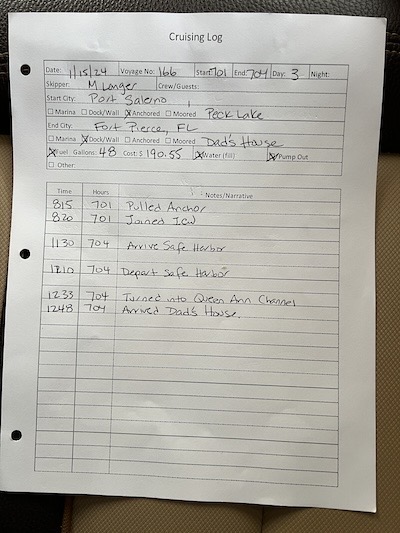 Cruising Log
Date: 1/15/24 Voyage No: 166 Start: 701 End: 704 Day: 3 Night:
Skipper: M Langer Crew/Guests:
Start City: Port Salerno
☐ Marina ☐ Dock/Wall ☒ Anchored ☐ Moored Peck Lake
End City: Fort Pierce, FL
☐ Marina ☒ Dock/Wall ☐ Anchored ☐ Moored Dad's House
☒ Fuel Gallons: 48 Cost: $ 190.55 ☒ Water (fill) ☒ Pump Out
☐ Other:
Time Hours Notes/Narrative
815 701 Pulled Anchor
820 701 Joined ICW
1130 704 Arrive Safe Harbor
1210 704 Depart Safe Harbor
1233 704 Turned into Queen Ann Channel
1248 704 Arrived Dad's House.